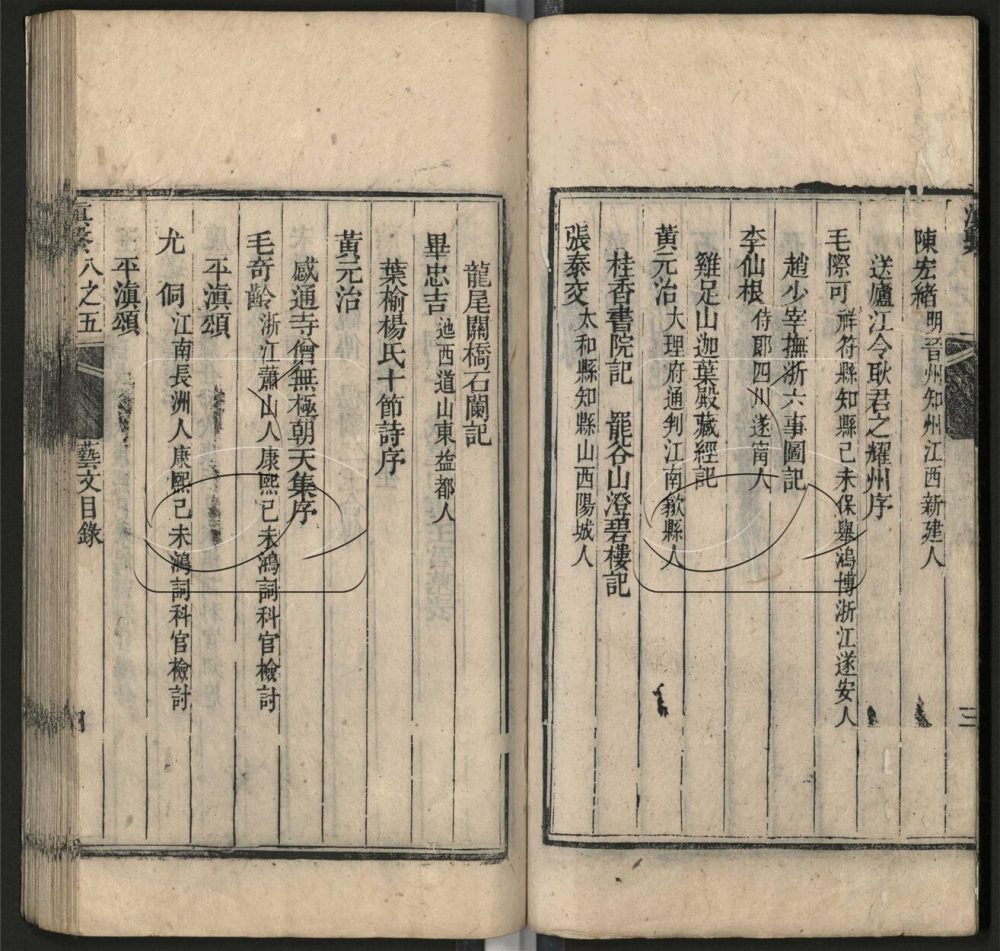 陳宏緒明晉州知州江西新建人
送廬江令耿君之耀州序
毛際可祥符縣知縣己未保舉鴻博浙江遂安人
趙少宰撫浙六事圖記
李仙根侍郎四川遂甯人
雞足山迦葉殿藏經記
黃元治大理府通判江南歙縣人
桂香書院記 罷谷山澄碧樓記
張泰交太和縣知縣山西陽城人
三
龍尾關橋石闌記
畢忠吉迆西道山東益都人
葉榆楊氏十節詩序
黃元治
感通寺僧無極朝天集序
毛奇齡浙江蕭山人康熙己未鴻詞科官檢討
平滇頌
尤侗江南長洲人康熙己未鴻詞科官檢討
平滇頌
滇繫 八之五 藝文目錄